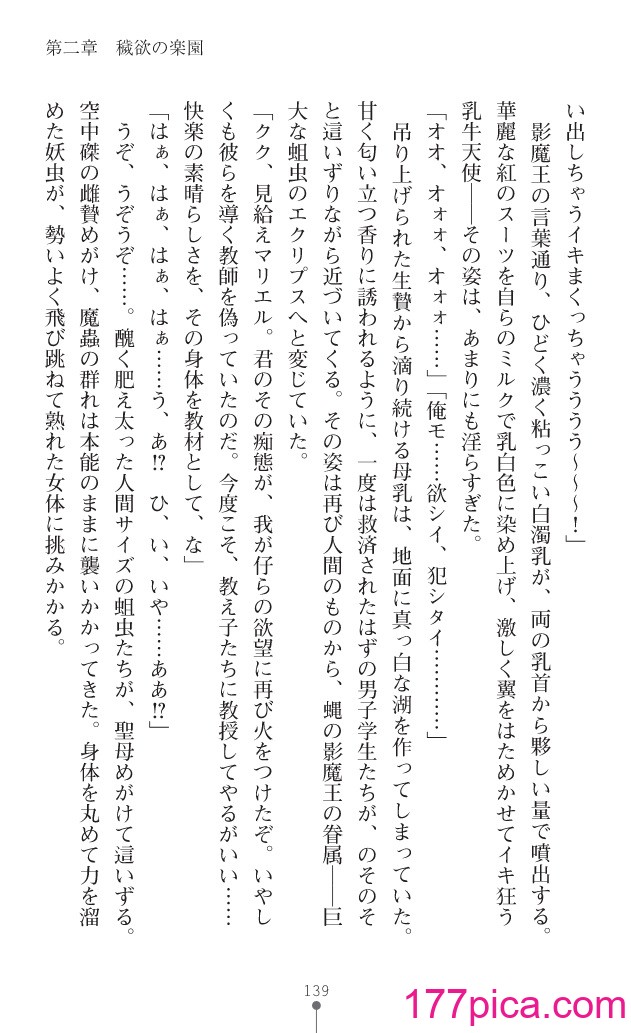 第二章　穢欲の楽園
い出しちゃうイキまくっちゃうううう～～～！」
　影魔王の言葉通り、ひどく濃く粘っこい白濁乳が、両の乳首から夥しい量で噴出する。
華麗な紅のスーツを自らのミルクで乳白色に染め上げ、激しく翼をはためかせてイキ狂う
乳牛天使――その姿は、あまりにも淫らすぎた。
「オオ、オォォ、オォォ……」「俺モ……欲シイ、犯シタイ…………」
　吊り上げられた生贄から滴り続ける母乳は、地面に真っ白な湖を作ってしまっていた。
甘く匂い立つ香りに誘われるように、一度は救済されたはずの男子学生たちが、のそのそ
と這いずりながら近づいてくる。その姿は再び人間のものから、蝿の影魔王の眷属――巨
大な蛆虫のエクリプスへと変じていた。
「クク、見給えマリエル。君のその痴態が、我が仔らの欲望に再び火をつけたぞ。いやし
くも彼らを導く教師を偽っていたのだ。今度こそ、教え子たちに教授してやるがいい……
快楽の素晴らしさを、その身体を教材として、な」
「はぁ、はぁ、はぁ、はぁ……う、あ!?　ひ、い、いや……ああ!?」
　うぞ、うぞうぞ……。醜く肥え太った人間サイズの蛆虫たちが、聖母めがけて這いずる。
空中磔の雌贄めがけ、魔蟲の群れは本能のままに襲いかかってきた。身体を丸めて力を溜
めた妖虫が、勢いよく飛び跳ねて熟れた女体に挑みかかる。
139
177pica.com